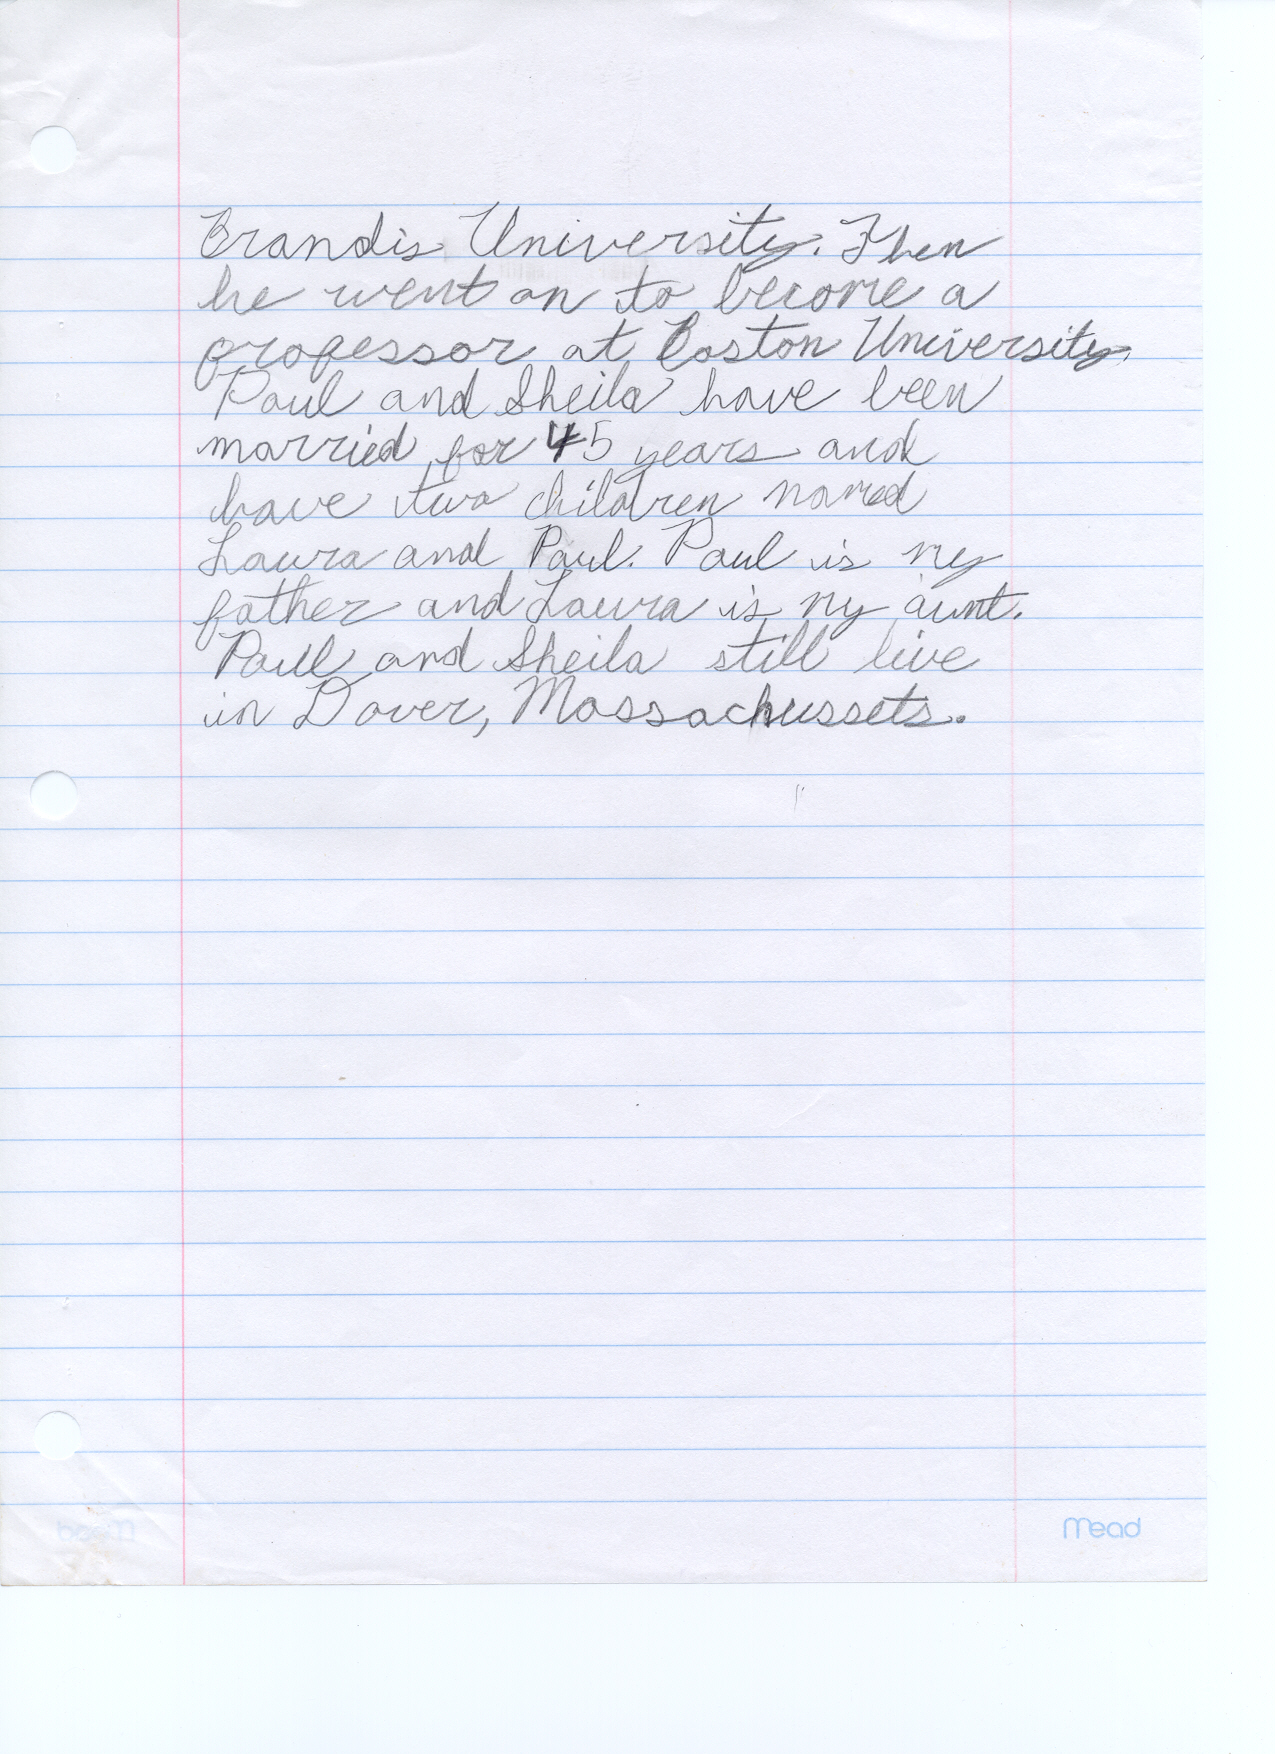 Brandis University. Then
he went on to become a
professor at Boston University.
Paul and Sheila have been
married for 45 years and
have two children named
Laura and Paul. Paul is my
father and Laura is my aunt.
Paul and Sheila still live
in Dover, Massachussets.
Mead